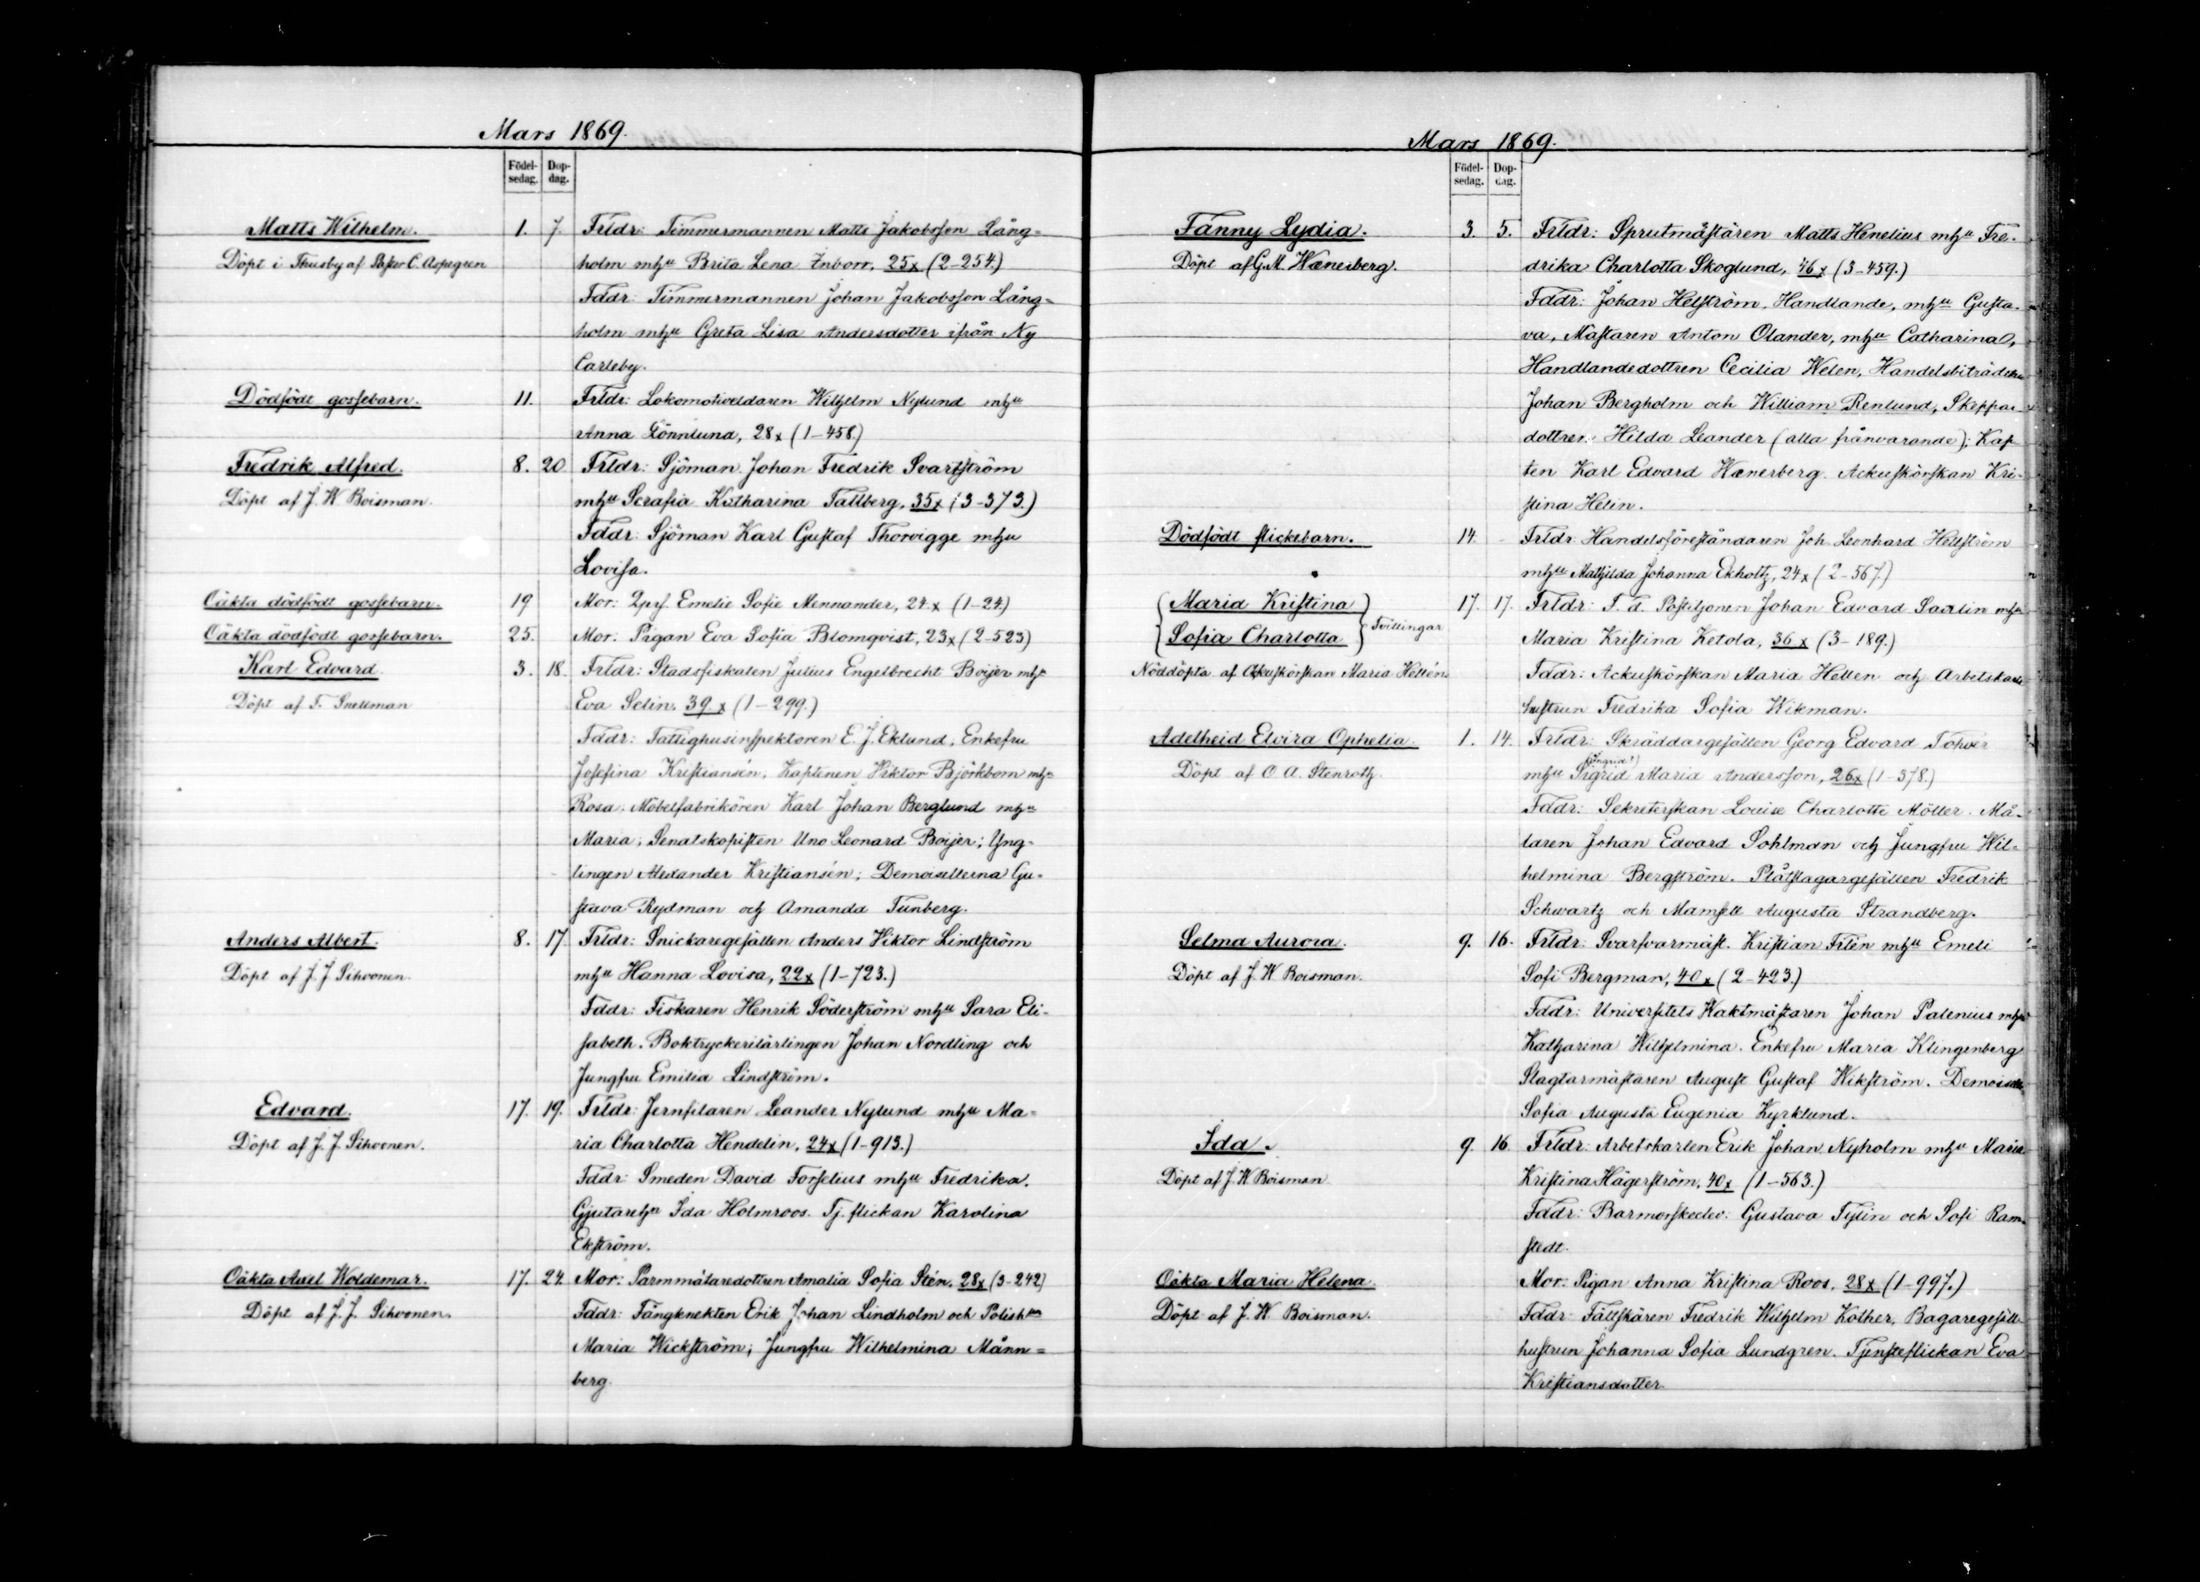 Mars 1869.
Födel-sedag. Dop-dag.
Matts Wilhelm. 1. 7. Frldr: Timmermannen Matts Jakobsson Lång=
Döpt i Thusby af Pastor C. Aspegren holm mhu Brita Lena Inborr, 25x (2-254.)
Fddr: Timmermannen Johan Jakobsson Lång=
holm mhu Greta Lisa Andersdotter ifrån Ny
Carleby.
Dödfödt gossebarn. 11. Frldr: Lokomotiveldaren Wilhelm Nylund mhu
Anna Lönnlund, 28x (1-458.)
Fredrik Alfred. 8. 20. Frldr: Sjöman Johan Fredrik Svartström
Döpt af J. W. Boisman. mhu Serafia Katharina Tallberg, 35x (3-373.)
Fddr: Sjöman Karl Gustaf Thorvigge mhu
Lovisa.
Oäkta dödfödt gossebarn. 19 Mor: Qprs. Emelie Sofie Mennander, 24x (1-24.)
Oäkta dödfödt gossebarn. 25. Mor: Pigan Eva Sofia Blomqvist, 23x (2-523)
Karl Edvard 3. 18. Frldr: Stadsfiskalen Julius Engelbrecht Boijer mhu
Döpt af T. Snellman Eva Selin, 39 x (1-299.)
Fddr: Fattighusinspektoren E. J. Eklund, Enkefru
Josefina Kristiansén, Kaptenen Viktor Björkbom mhu
Rosa. Möbelfabrikören Karl Johan Berglund mhu
Maria; Senatskopisten Uno Leonard Boijer; Yng-
lingen Alexander Kristiansén; Demoisellerna Gu-
stava Rydman och Amanda Tunberg.
Anders Albert. 8. 17. Frldr: Snickaregesällen Anders Viktor Lindström
Döpt af J. J. Sihvonen. mhu Hanna Lovisa, 22x (1-723.)
Fddr: Fiskaren Henrik Söderström mhu Sara Eli-
sabeth. Boktryckerilärlingen Johan Nordling och
Jungfru Emilia Lindström.
Edvard. 17. 19. Frldr: Jernfilaren Leander Nylund mhu Ma=
Döpt af J. J. Sihvonen. ria Charlotta Hendelin, 24x (1-913.)
Fddr: Smeden David Forselius mhu Fredrika.
Gjutarehu Ida Holmroos. Tj. flickan Karolina
Ekström.
Oäkta Axel Woldemar. 17. 24. Mor: Parmmätaredottren Amalia Sofia Stén, 28x (3-242)
Döpt af J. J. Sihvonen. Fddr: Fångknekten Erik Johan Lindholm och Polish
Maria Wickström; Jungfru Wilhelmina Månn=
berg.
Mars 1869.
Födel-sedag. Dop-dag.
Fanny Lydia. 3. 5. Frldr: Sprutmästaren Matts Henelius mhu Fre-
Döpt af G. M. Wænerberg. drika Charlotta Skoglund, 46x (3-459.)
Fddr: Johan Helström, Handlande, mhu Gusta-
va, Mästaren Anton Olander, mhu Catharina,
Handlandedottren Cecilia Welen, Handelsbiträden
Johan Bergholm och William Renlund, Skeppar-
dottren Hilda Leander (alla frånvarande); Kap
ten Karl Edvard Wænerberg. Ackuskörskan Kri-
stina Helin.
Dödfödt flickebarn. 14. Frldr: Handelsföreståndaren Joh. Leonhard Hellström
mhu Mathilda Johanna Ekholtz, 24x (2-567.)
Maria Kristina 17. 17. Frldr: T. d. Postiljonen Johan Edvard Saxlin mhu
Sofia Charlotta Tvillingar Maria Kristina Ketola, 36x (3-189.)
Nöddöpta af Ackuskörskan Maria Hellén. Fddr: Ackuskörskan Maria Hellen och Arbetskarls
hustrun Fredrika Sofia Wikman.
Adelheid Elvira Ophelia. 1. 14. Frldr: Skräddargesällen Georg Edvard Tohvér
Döpt af O. A. Stenroth. mhu Sigrid (Ingrid?) Maria Andersson, 26x (1-378.)
Fddr: Sekreterskan Louise Charlotte Möller. Må-
laren Johan Edvard Sohlman och Jungfru Wil-
helmina Bergström. Plåtslagargesällen Fredrik
Schwartz och Mamsell Augusta Strandberg.
Selma Aurora. 9. 16. Frldr: Svarfvarmäst. Kristian Frlén mhu Emeli
Döpt af J. W. Boisman. Sofi Bergman, 40x (2-423.)
Fddr: Universitets Vaktmästaren Johan Palenius mhu
Katharina Wilhelmina. Enkefru Maria Klingenberg
Slagtarmästaren August Gustaf Wikström. Demoiselle
Sofia Augusta Eugenia Kyrklund.
Ida. 9. 16. Frldr: Arbetskarlen Erik Johan Nyholm mhu Maria
Döpt af J. W. Boisman Kristina Hägerström, 40x (1-563.)
Fddr: Barmorskeelev: Gustava Tylin och Sofi Ram-
stedt.
Oäkta Maria Helena. Mor: Pigan Anna Kristina Roos, 28x (1-997.)
Döpt af J. W. Boisman. Fddr: Fältskären Fredrik Wilhelm Kother, Bagaregesäll-
hustrun Johanna Sofia Lundgren. Tjensteflickan Eva
Kristiansdotter.